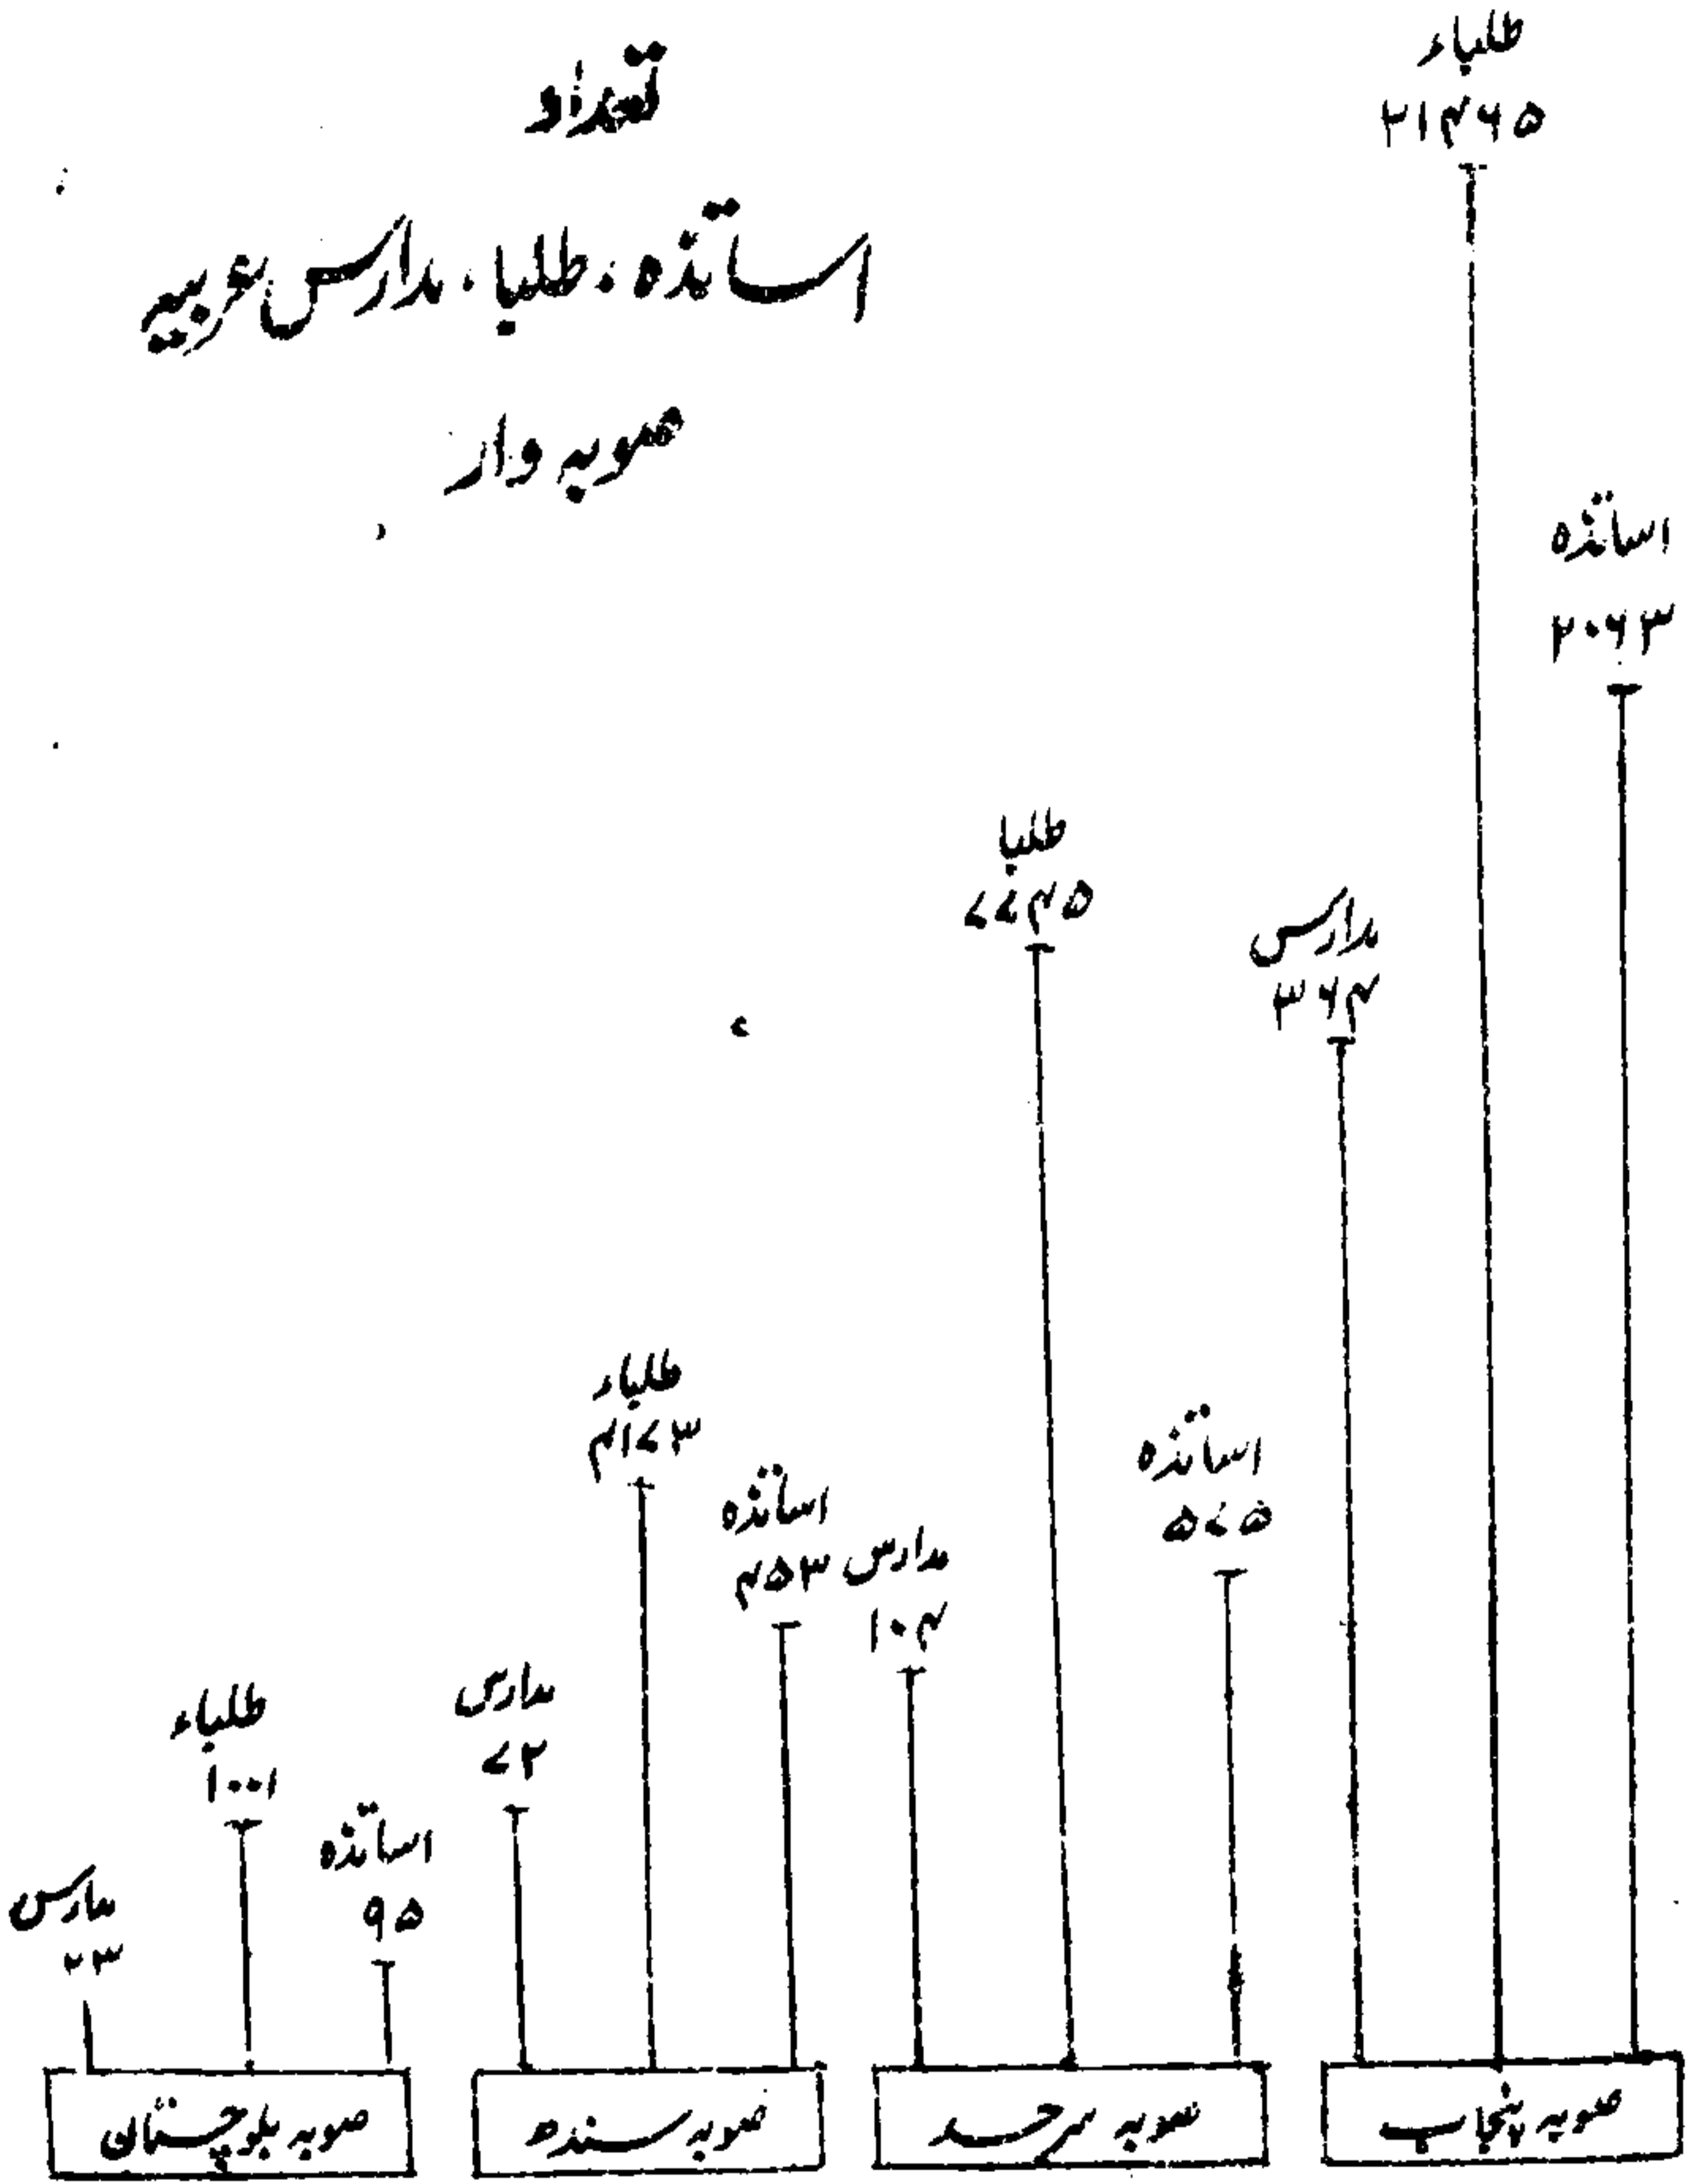 تعداد
اساتذہ، طلبا، مدارس عربیہ
صوبہ وار
طلباء
۲۱۴۶۵
اساتذہ
۲۰۶۳
مدارس
۳۶۴
طلبا
۷۷۴۵
اساتذہ
۵۷۵
مدارس
۱۰۴
طلباء
۴۱۷۳
اساتذہ
۴۵۳
مدارس
۷۲
طلباء
۱۰۰۱
اساتذہ
۹۵
مدارس
۲۳
صوبہ پنجاب
صوبہ سرحد
صوبہ سندھ
صوبہ بلوچستان